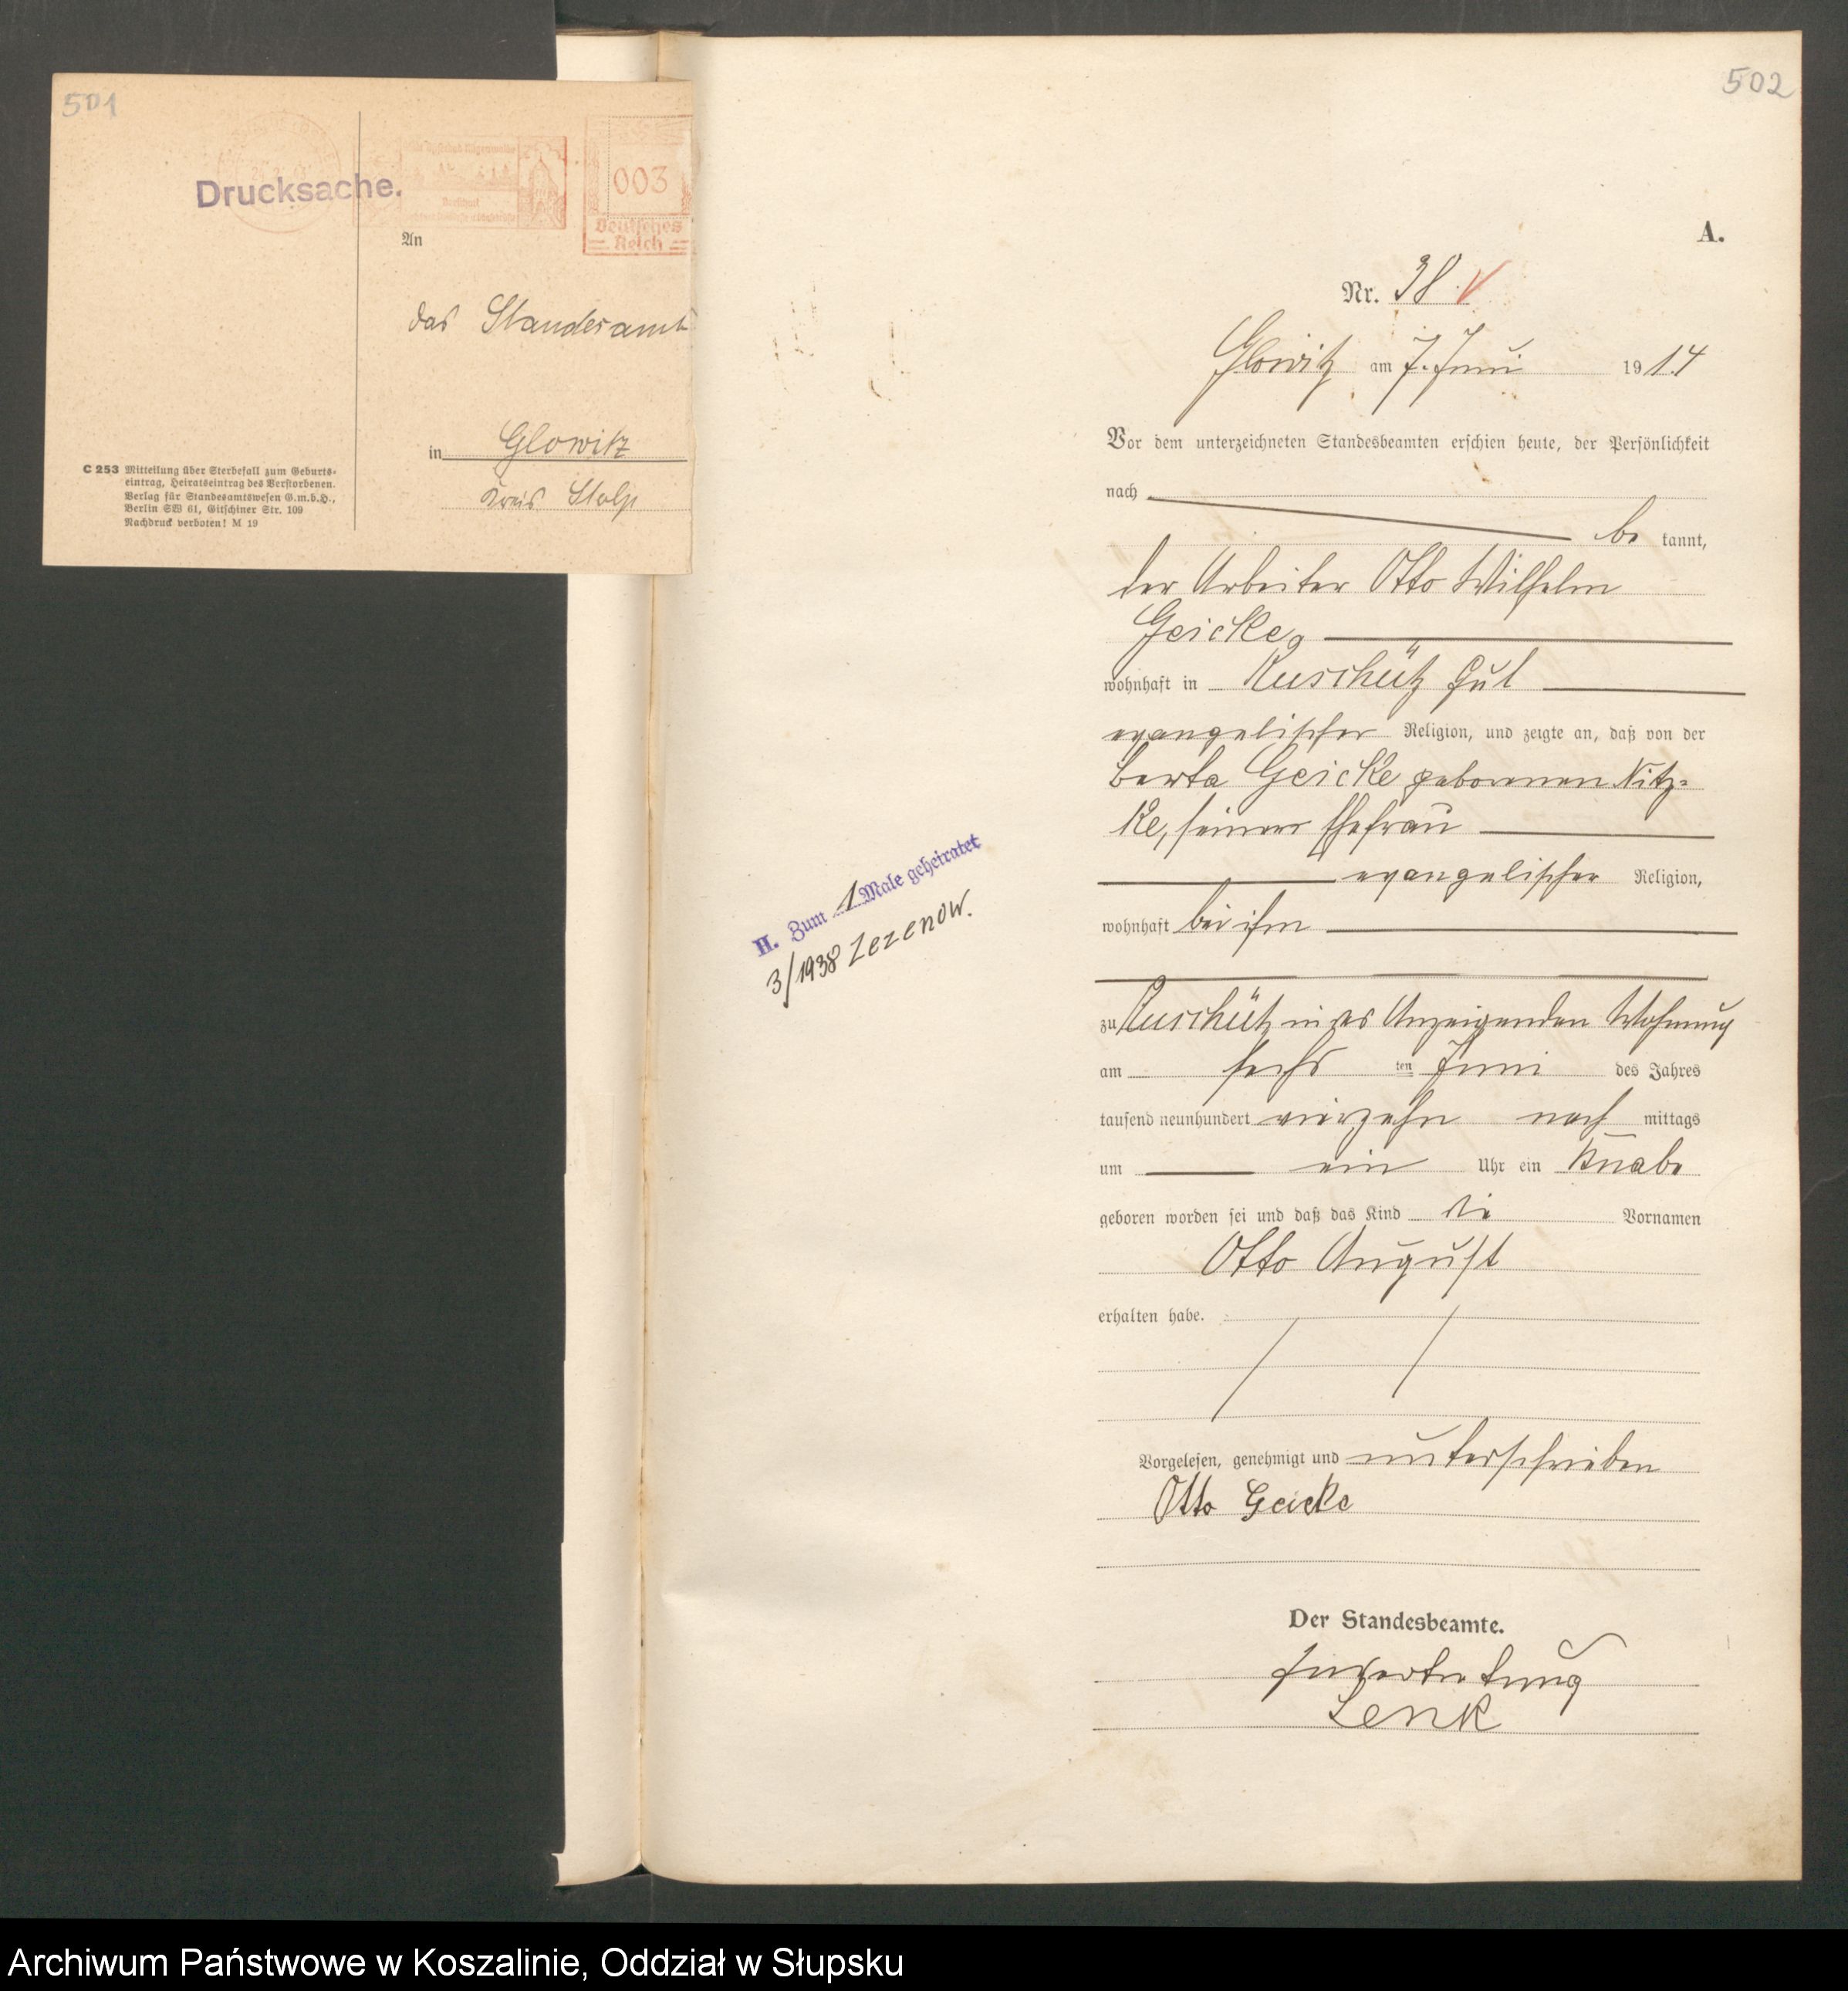 501
Drucksache.
003
Deutsches
Reich
An
das Standesamt
in Glowitz
Kreis Stolp
C 253 Mitteilung über Sterbefall zum Geburts-
eintrag, Heiratseintrag des Verstorbenen.
Verlag für Standesamtswesen G.m.b.H.,
Berlin SW 61, Gitschiner Str. 109
Nachdruck verboten! M 19
502
A.
Nr. 38
Glowitz am 7. Juni 1914
Vor dem unterzeichneten Standesbeamten erschien heute, der Persönlichkeit
nach
be kannt,
der Arbeiter Otto Wilhelm
Geicke,
wohnhaft in Ruschütz Gut
evangelischer Religion, und zeigte an, daß von der
Berta Geicke geborenen Nitz-
ke, seiner Ehefrau
evangelischer Religion,
wohnhaft bei ihm
zu Ruschütz in des Anzeigenden Wohnung
am sechs ten Juni des Jahres
tausend neunhundert vierzehn nach mittags
um ein Uhr ein Knabe
geboren worden sei und daß das Kind die Vornamen
Otto August
erhalten habe.
Vorgelesen, genehmigt und unterschrieben
Otto Geicke
Der Standesbeamte.
In Vertretung
Lenk
II. Zum 1 Male geheiratet
3/1938 Zezenow.
Archiwum Państwowe w Koszalinie, Oddział w Słupsku